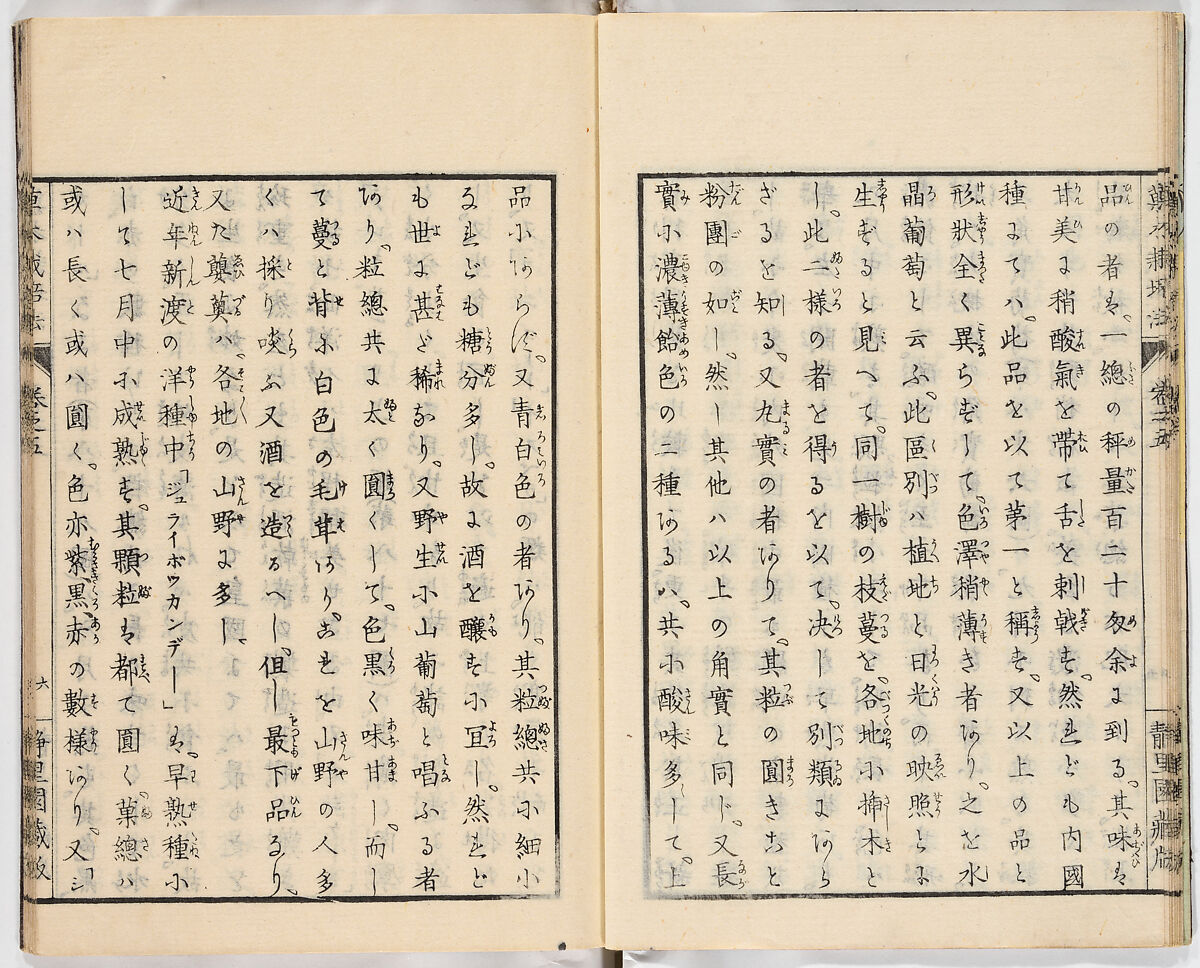 品の者ハ、一總の秤量百二十匁余に到る、其味ハ
甘美に稍酸氣を帶て舌を刺戟す、然れども内國
種にてハ、此品を以て第一と稱す、又以上の品と
形狀全く異らずして、色澤稍薄き者あり、之を水
晶葡萄と云ふ、此區別ハ植地と日光の映照とに
生ずると見へて、同一樹の枝蔓を、各地小揷木と
し、此二樣の者を得るを以て、决して別類にあら
ざるを知る、又丸實の者ありて、其粒の圓きこと
粉團の如し、然し其他ハ以上の角實と同じ、又長
實小濃薄飴色の二種あるハ、共小酸味多して、上
品小あらず、又青白色の者あり、其粒總共小細小
なれども糖分多し、故に酒を釀す小宜し、然れど
も世に甚ど稀なり、又野生小山葡萄と唱ふる者
あり、粒總共に太く圓くして、色黒く味甘し、而し
て蔓と背小白色の毛茸あり、これを山野の人多
くハ採り啖ふ又酒を造るへし、但し最下品なり、
又た蘡薁ハ、各地の山野に多し、
近年新渡の洋種中「ジュライボツカンデー」ハ、早熟種小
して七月中小成熟す、其顆粒ハ都て圓く菓總ハ
或ハ長く或ハ圓く、色亦紫黒、赤の數樣あり、又「シ
卷之五
六
靜里園藏版